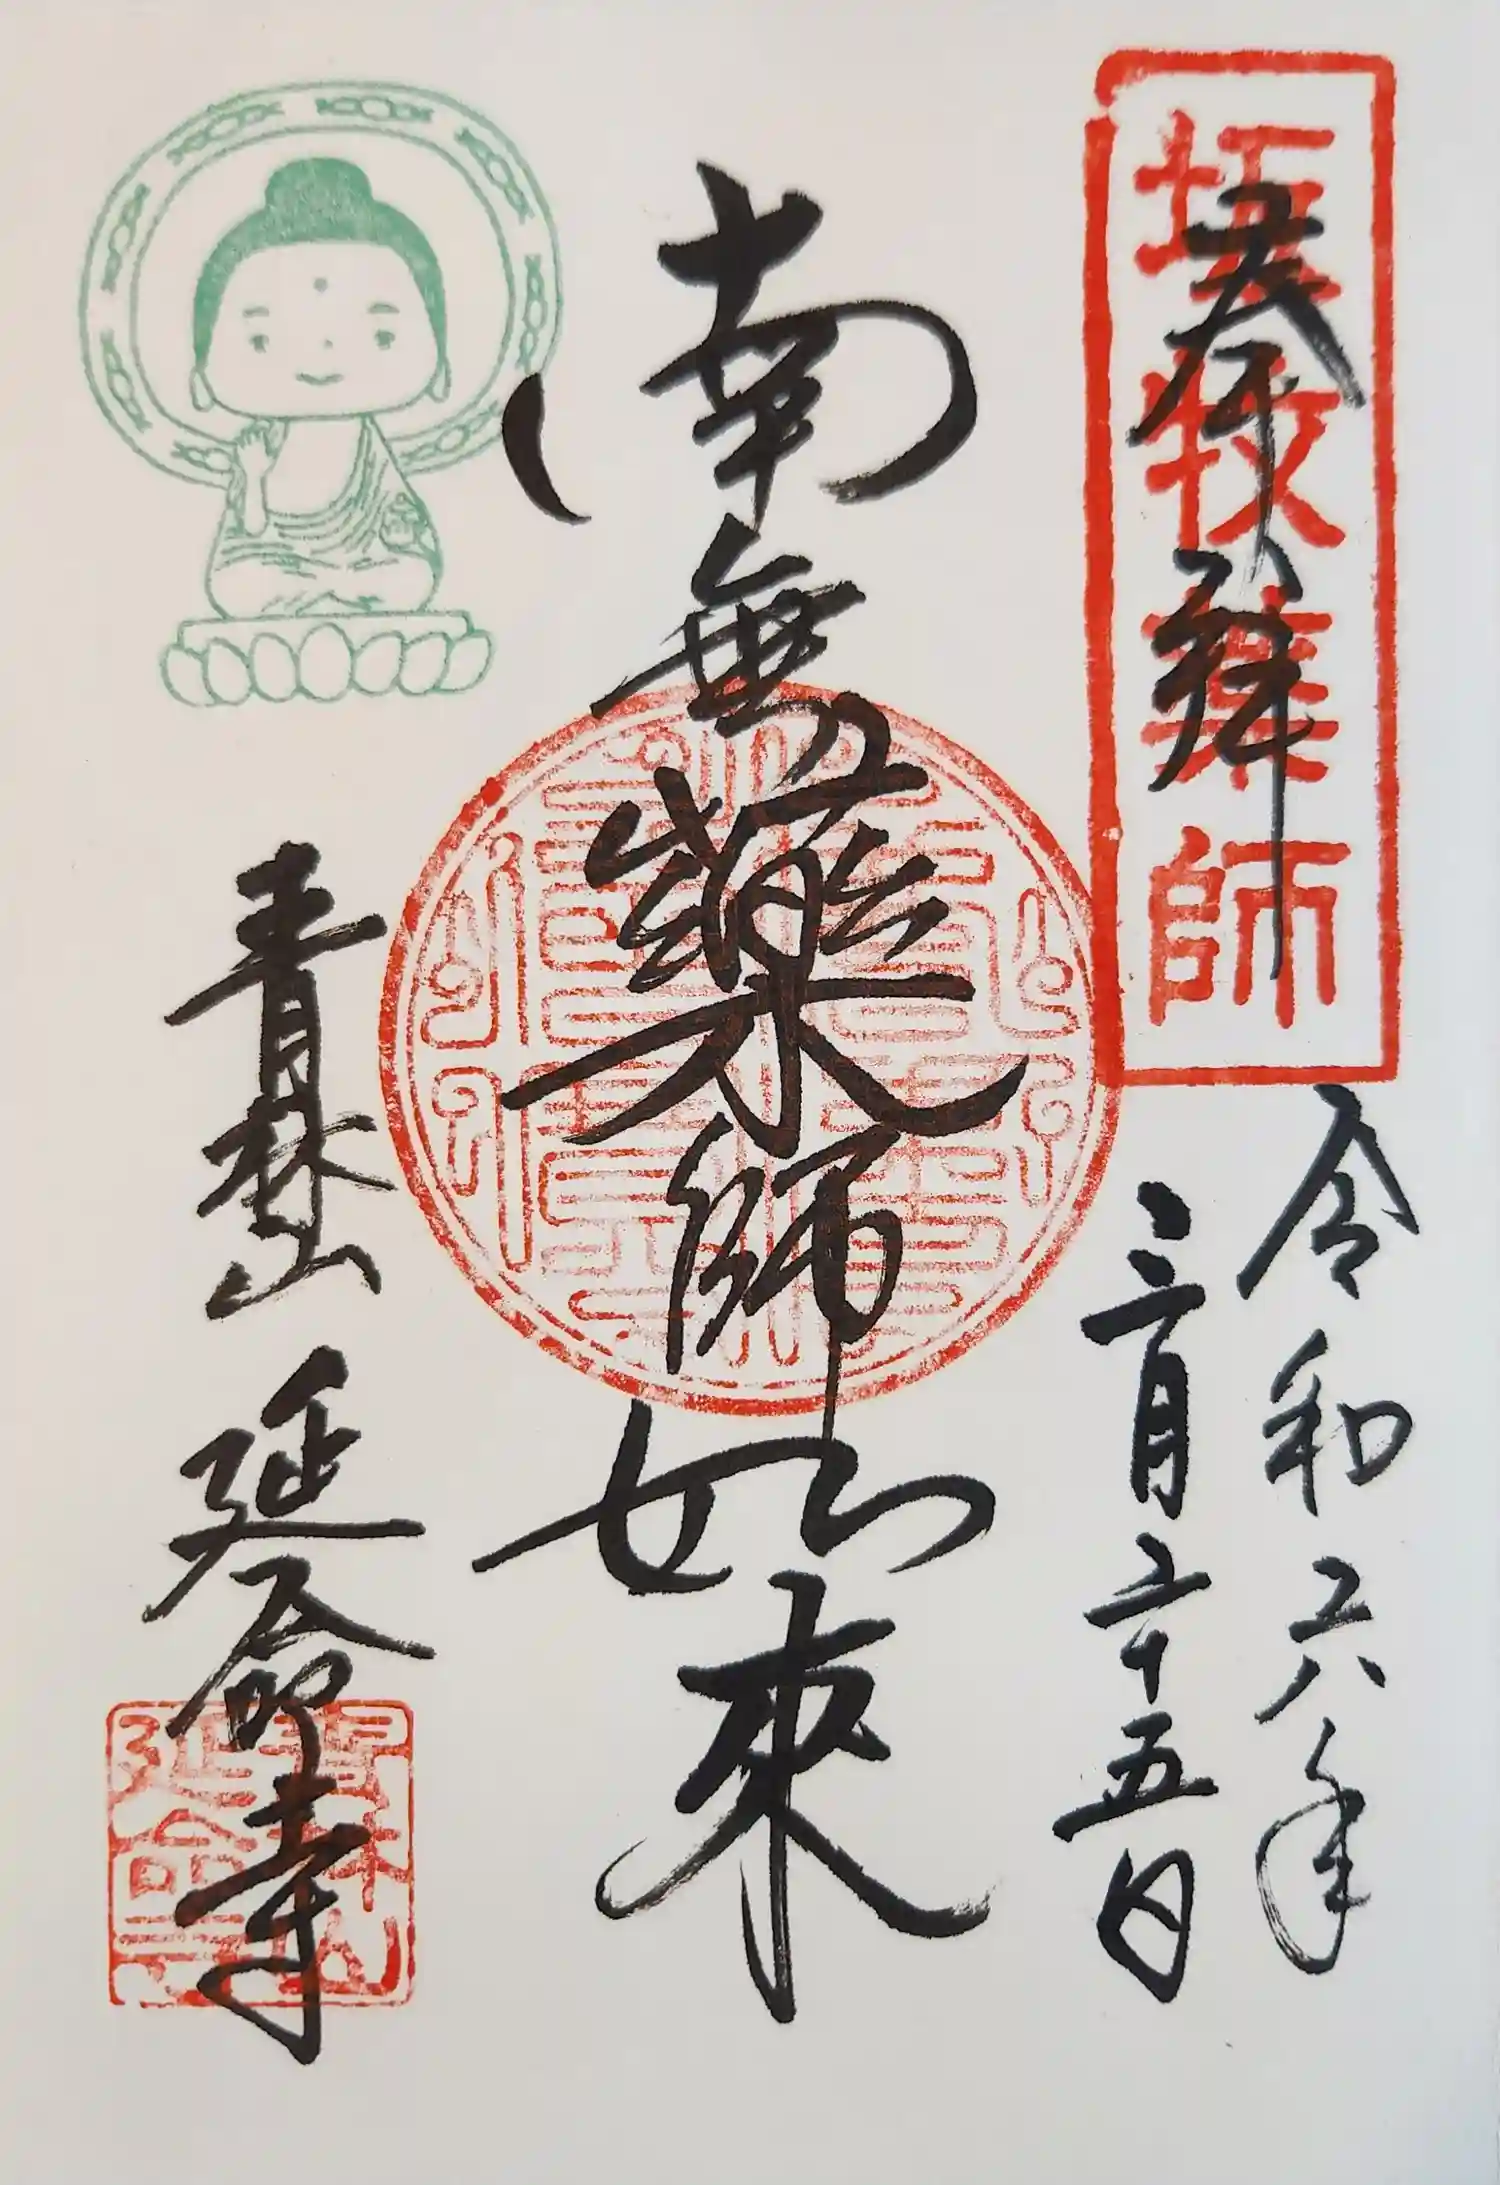 奉拝
師
令和六年
三月二十五日
南無藥師如來
青林山 延命寺
青林山
延命寺